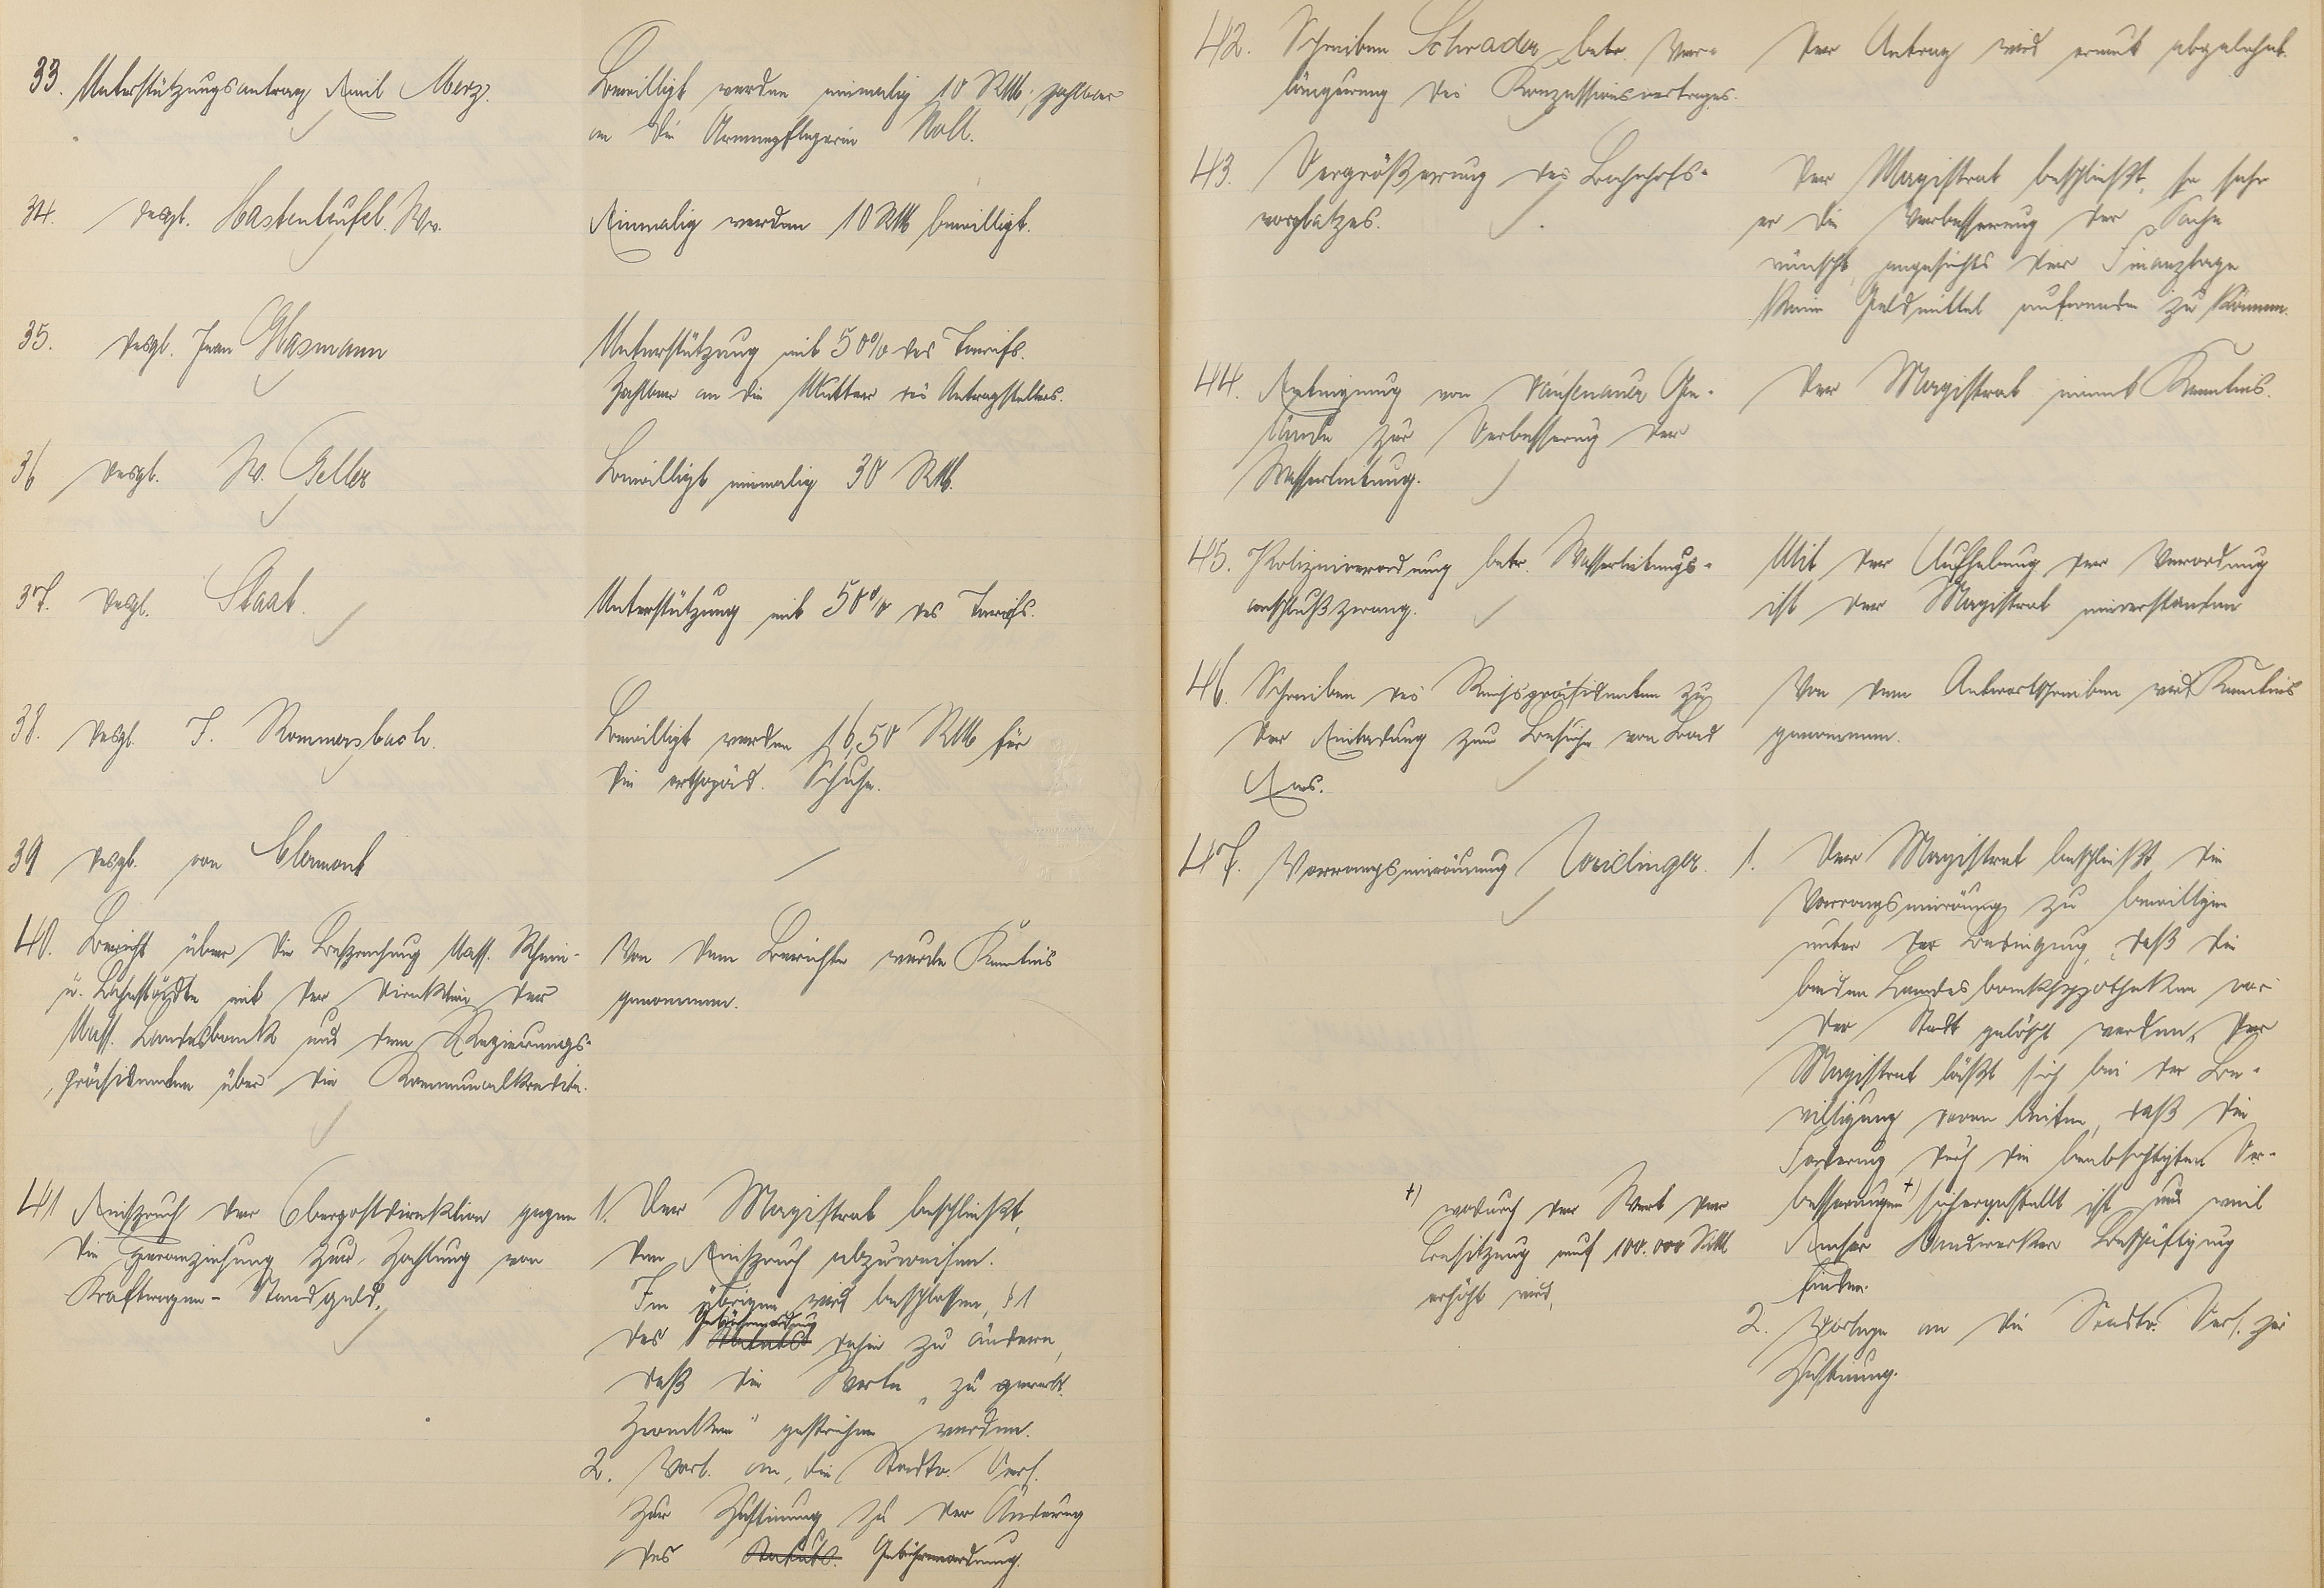 33. Unterstützungsantrag Emil Merz.
Bewilligt werden einmalig 10 RM, zahlbar
an die Armenpflegerin Noll.
34. desgl. Hastenteufel. Ww.
Einmalig werden 10 RM bewilligt.
35. desgl. Jean Glasmann
Unterstützung mit 50% des Tarifs.
Zahlbar an die Mutter des Antragstellers.
36 desgl. W. Geller
Bewilligt einmalig 30 RM.
37. desgl. Staat.
Unterstützung mit 50% des Tarifs.
38. desgl. J. Rommersbach.
Bewilligt werden 16,50 RM für
die orthopäd. Schuhe.
39 desgl. von Clermont
40. Bericht über die Besprechung Nass. Rhein-
u. Lahnstädte mit der Direktion der
Nass. Landesbank und dem Regierungs-
präsidenten über die Kommunalkredite.
Von dem Berichte wurde Kenntnis
genommen.
41 Einspruch der Oberpostdirektion gegen
die Heranziehung zur Zahlung von
Kraftwagen-Standgeld.
1. Der Magistrat beschließt,
den Einspruch abzuweisen.
Im übrigen wird beschlossen, § 1
Gebührenordnung
des Statuts dahin zu ändern,
daß die Worte „zu gewerbl.
Zwecken" gestrichen werden.
2. Vorl. an die Stadtv. Vers.
zur Zustimmung zu der Änderung
des Statuts. Gebührenordnung.
42. Schreiben Schrader betr. Ver-
längerung des Konzessionsvertrages.
Der Antrag wird erneut abgelehnt.
43. Vergrößerung des Bahnhofs-
vorplatzes.
Der Magistrat beschließt, so sehr
er die Verbesserung der Sache
wünscht, angesichts der Finanzlage
keine Geldmittel aufwenden zu können.
44. Enteignung von Dausenauer Ge-
lände zur Verbesserung der
Wasserleitung.
Der Magistrat nimmt Kenntnis.
45. Polizeiverordnung betr. Wasserleitungs-
anschlußzwang.
Mit der Aufhebung der Verordnung
ist der Magistrat einverstanden
46. Schreiben des Reichspräsidenten zu
der Einladung zum Besuche von Bad
Ems.
Von dem Antwortschreiben wird Kenntnis
genommen.
47. Vorrangseinräumung
1. Der Magistrat beschließt die
Vorrangseinräumung zu bewilligen
unter der Bedingung, daß die
beiden Landesbankhypotheken vor
der Stadt gelöscht werden. Der
Magistrat läßt sich bei der Be-
willigung davon leiten, daß die
Forderung durch die beabsichtigten Ver-
besserungen +) sichergestellt ist und weil
Emser Handwerker Beschäftigung
finden.
+) wodurch der Wert der
Besitzung auf 100.000 RM
erhöht wird,
2. Vorlage an die Stadtv. Vers. zur
Zustimmung.